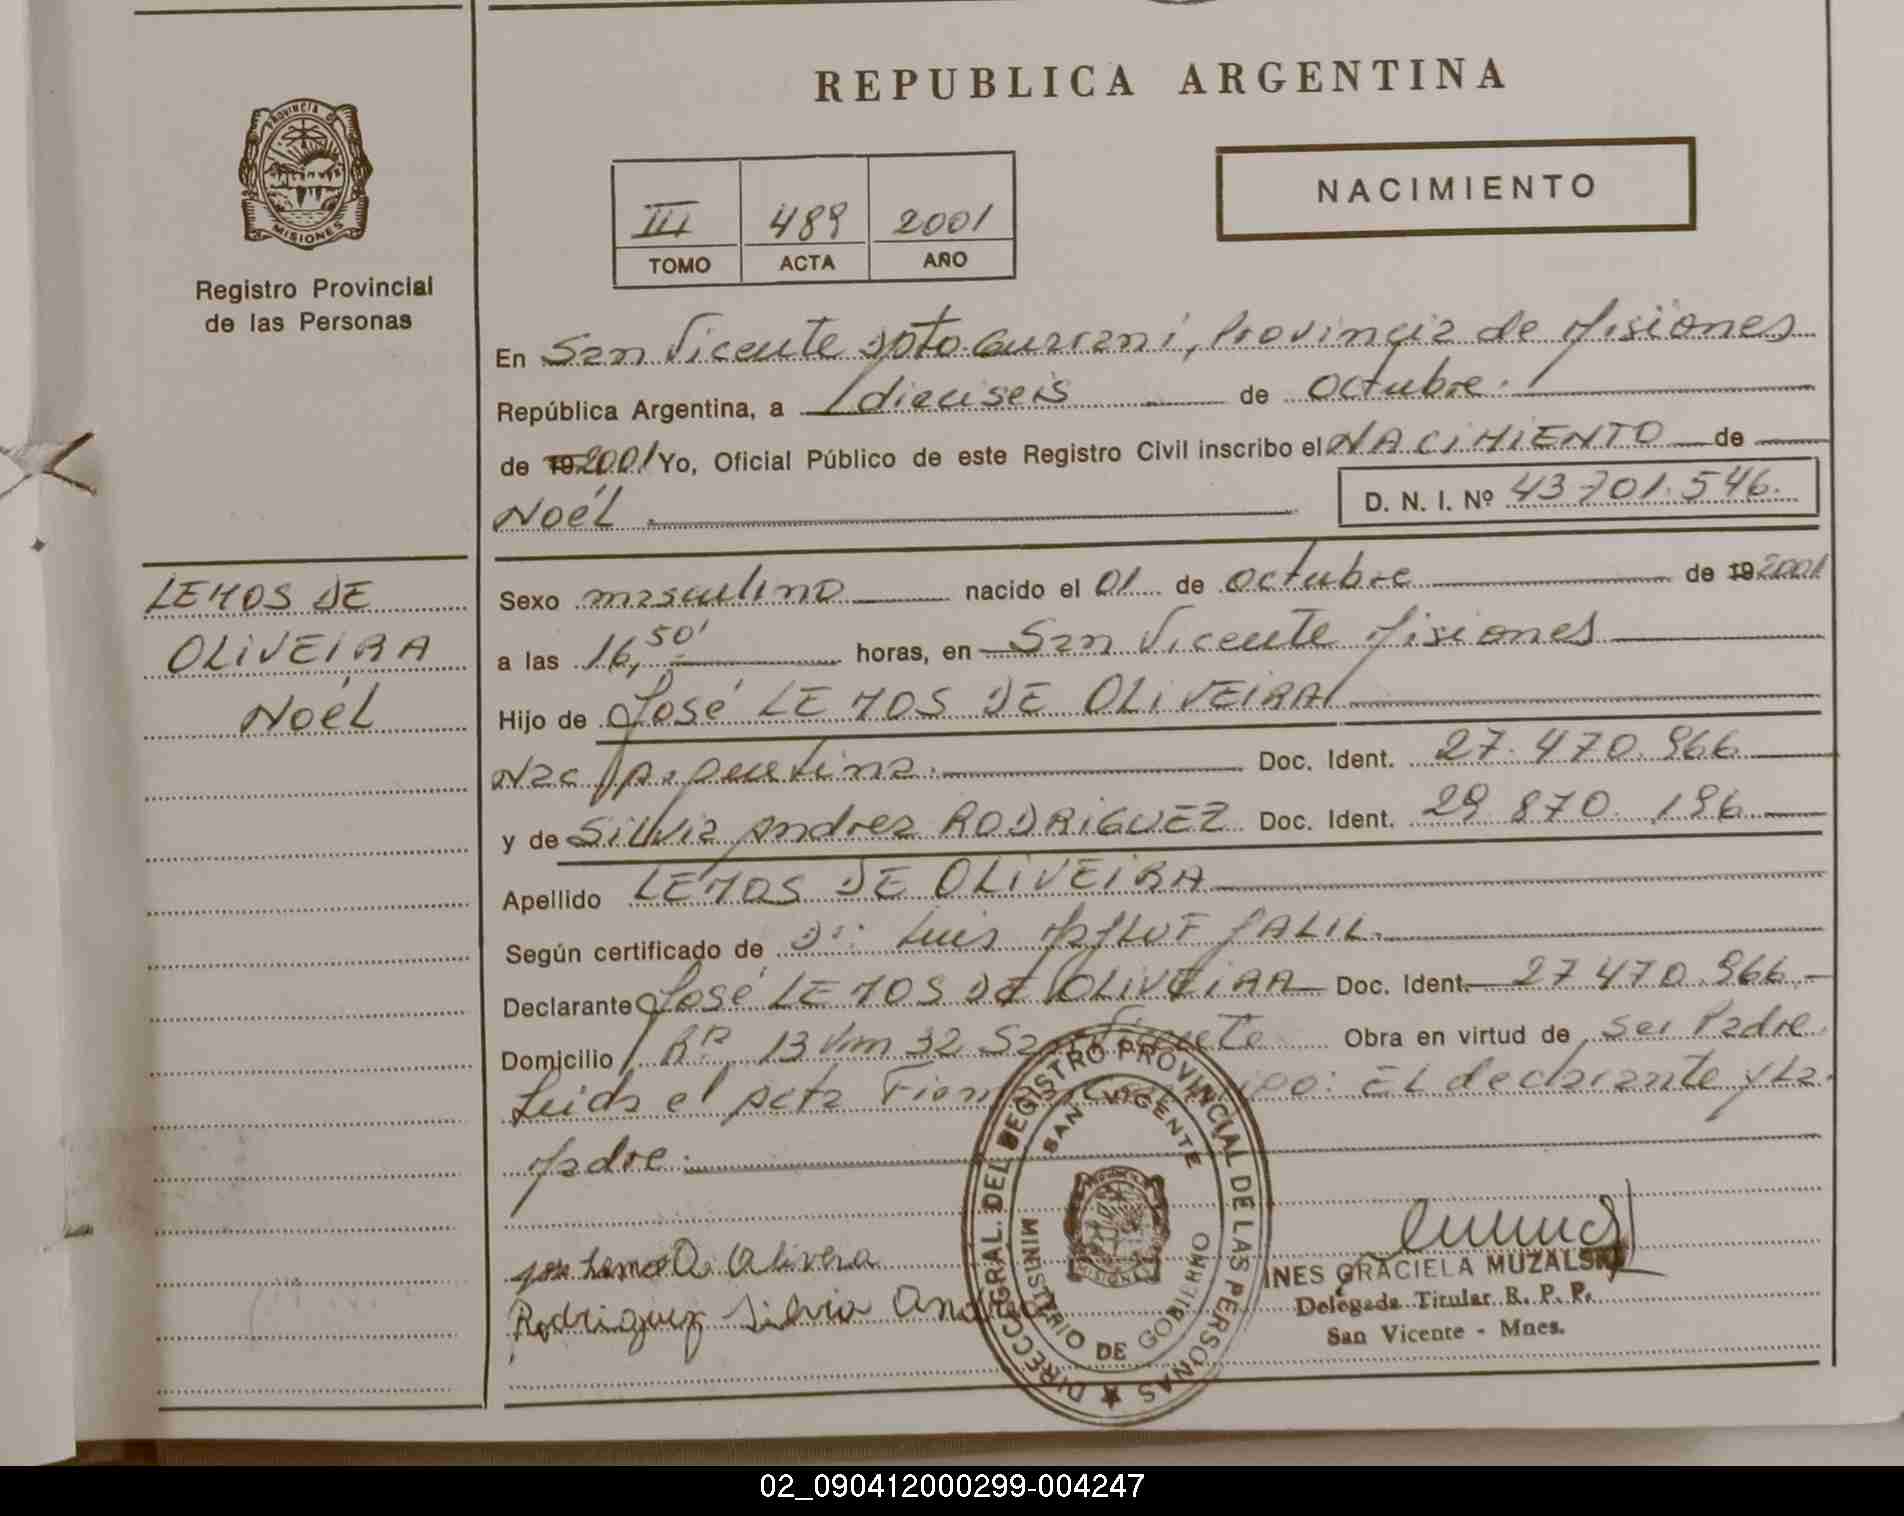 REPUBLICA ARGENTINA
PROVINCIA DE
MISIONES
Registro Provincial
de las Personas
III 489 2001
TOMO ACTA AÑO
NACIMIENTO
En San Vicente Dpto Guarani, Provincia de Misiones
República Argentina, a dieciseis de octubre.
de 19 2001 Yo, Oficial Público de este Registro Civil inscribo el NACIMIENTO de
Noél
D. N. I. Nº 43 701.546.
LEMOS DE
OLIVEIRA
Noél
Sexo masculino nacido el 01 de octubre de 19 2001
a las 16,50' horas, en San Vicente Misiones
Hijo de José LEMOS DE OLIVEIRA
Nac Argentina. Doc. Ident. 27.470.966
y de Silvia Andrea RODRIGUEZ Doc. Ident. 29 870.196
Apellido LEMOS DE OLIVEIRA
Según certificado de Dr: Luis JALIL.
Declarante José LEMOS DE OLIVEIRA Doc. Ident. 27 470.966.
Domicilio Rª 13 Km 32 San Vicente Obra en virtud de ser Padre
Leida el acta Firman : El declarante y La
Madre.
Jose Lemos D. Olivera
Rodriguez Silvia Andrea
DIRECC. GRAL. DEL REGISTRO PROVINCIAL DE LAS PERSONAS
SAN VICENTE
MISIONES
MINISTERIO DE GOBIERNO
INES GRACIELA MUZALSKI
Delegada Titular R. P. P.
San Vicente - Mnes.
02_090412000299-004247